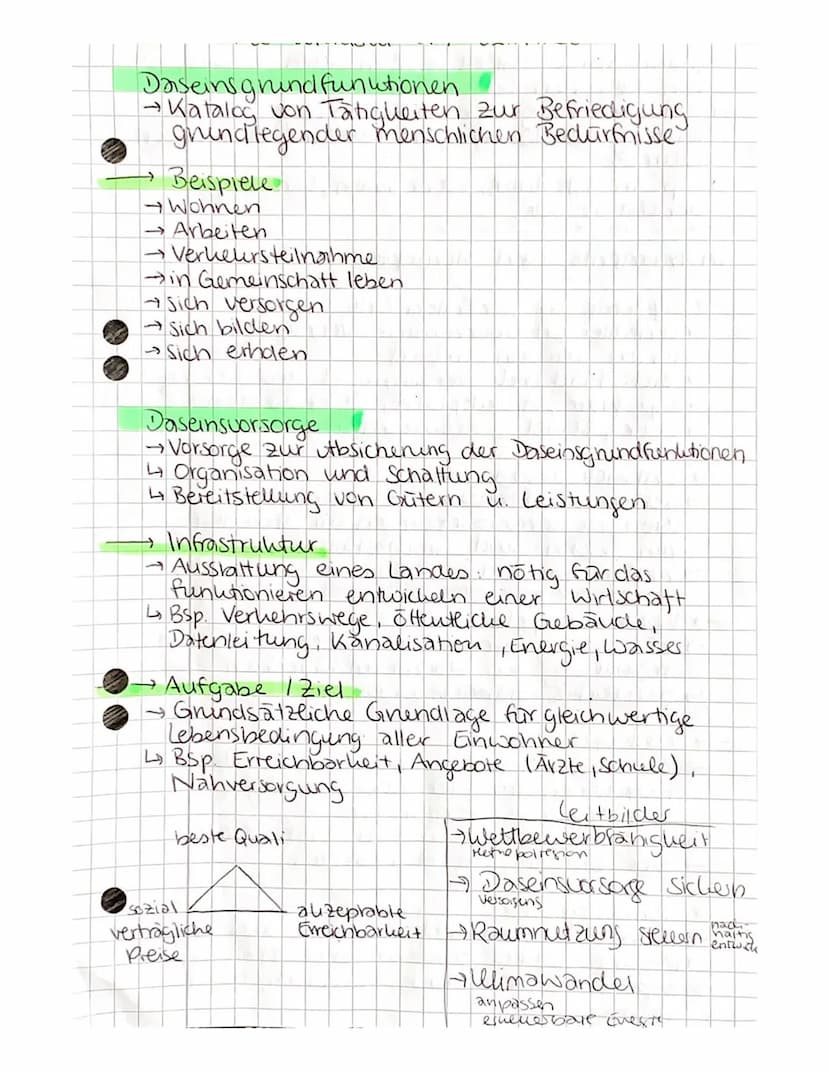 Daseinsgrundfunktionen
→ Katalog von Tätigkeiten zur Befriedigung
grundlegender menschlichen Bedürfnisse
→ Beispiele
→ Wohnen
→ Arbeiten
→ Verkehrsteilnahme
→ in Gemeinschaft leben
→ sich versorgen
→ sich bilden
→ sich erholen
Daseinsvorsorge
→ Vorsorge zur Absicherung der Daseinsgrundfunktionen
↳ Organisation und Schaffung
↳ Bereitstellung von Gütern u. Leistungen
→ Infrastruktur
→ Ausstattung eines Landes: nötig für das
funktionieren entwickeln einer Wirtschaft
↳ Bsp. Verkehrswege, öffentliche Gebäude,
Datenleitung, Kanalisation, Energie, Wasser
→ Aufgabe / Ziel
→ Grundsätzliche Grundlage für gleichwertige
Lebensbedingung aller Einwohner
↳ Bsp. Erreichbarkeit, Angebote (Ärzte, Schule),
Nahversorgung
beste Quali
sozial
verträgliche
Preise
akzeptable
Erreichbarkeit
Leitbilder
→ Wettbewerbfähigkeit
Metropolregion
→ Daseinsvorsorge sichern
versorgung
→ Raumnutzung steuern nach
haltig
entwick
→ Klimawandel
anpassen
erneuerbare Energie